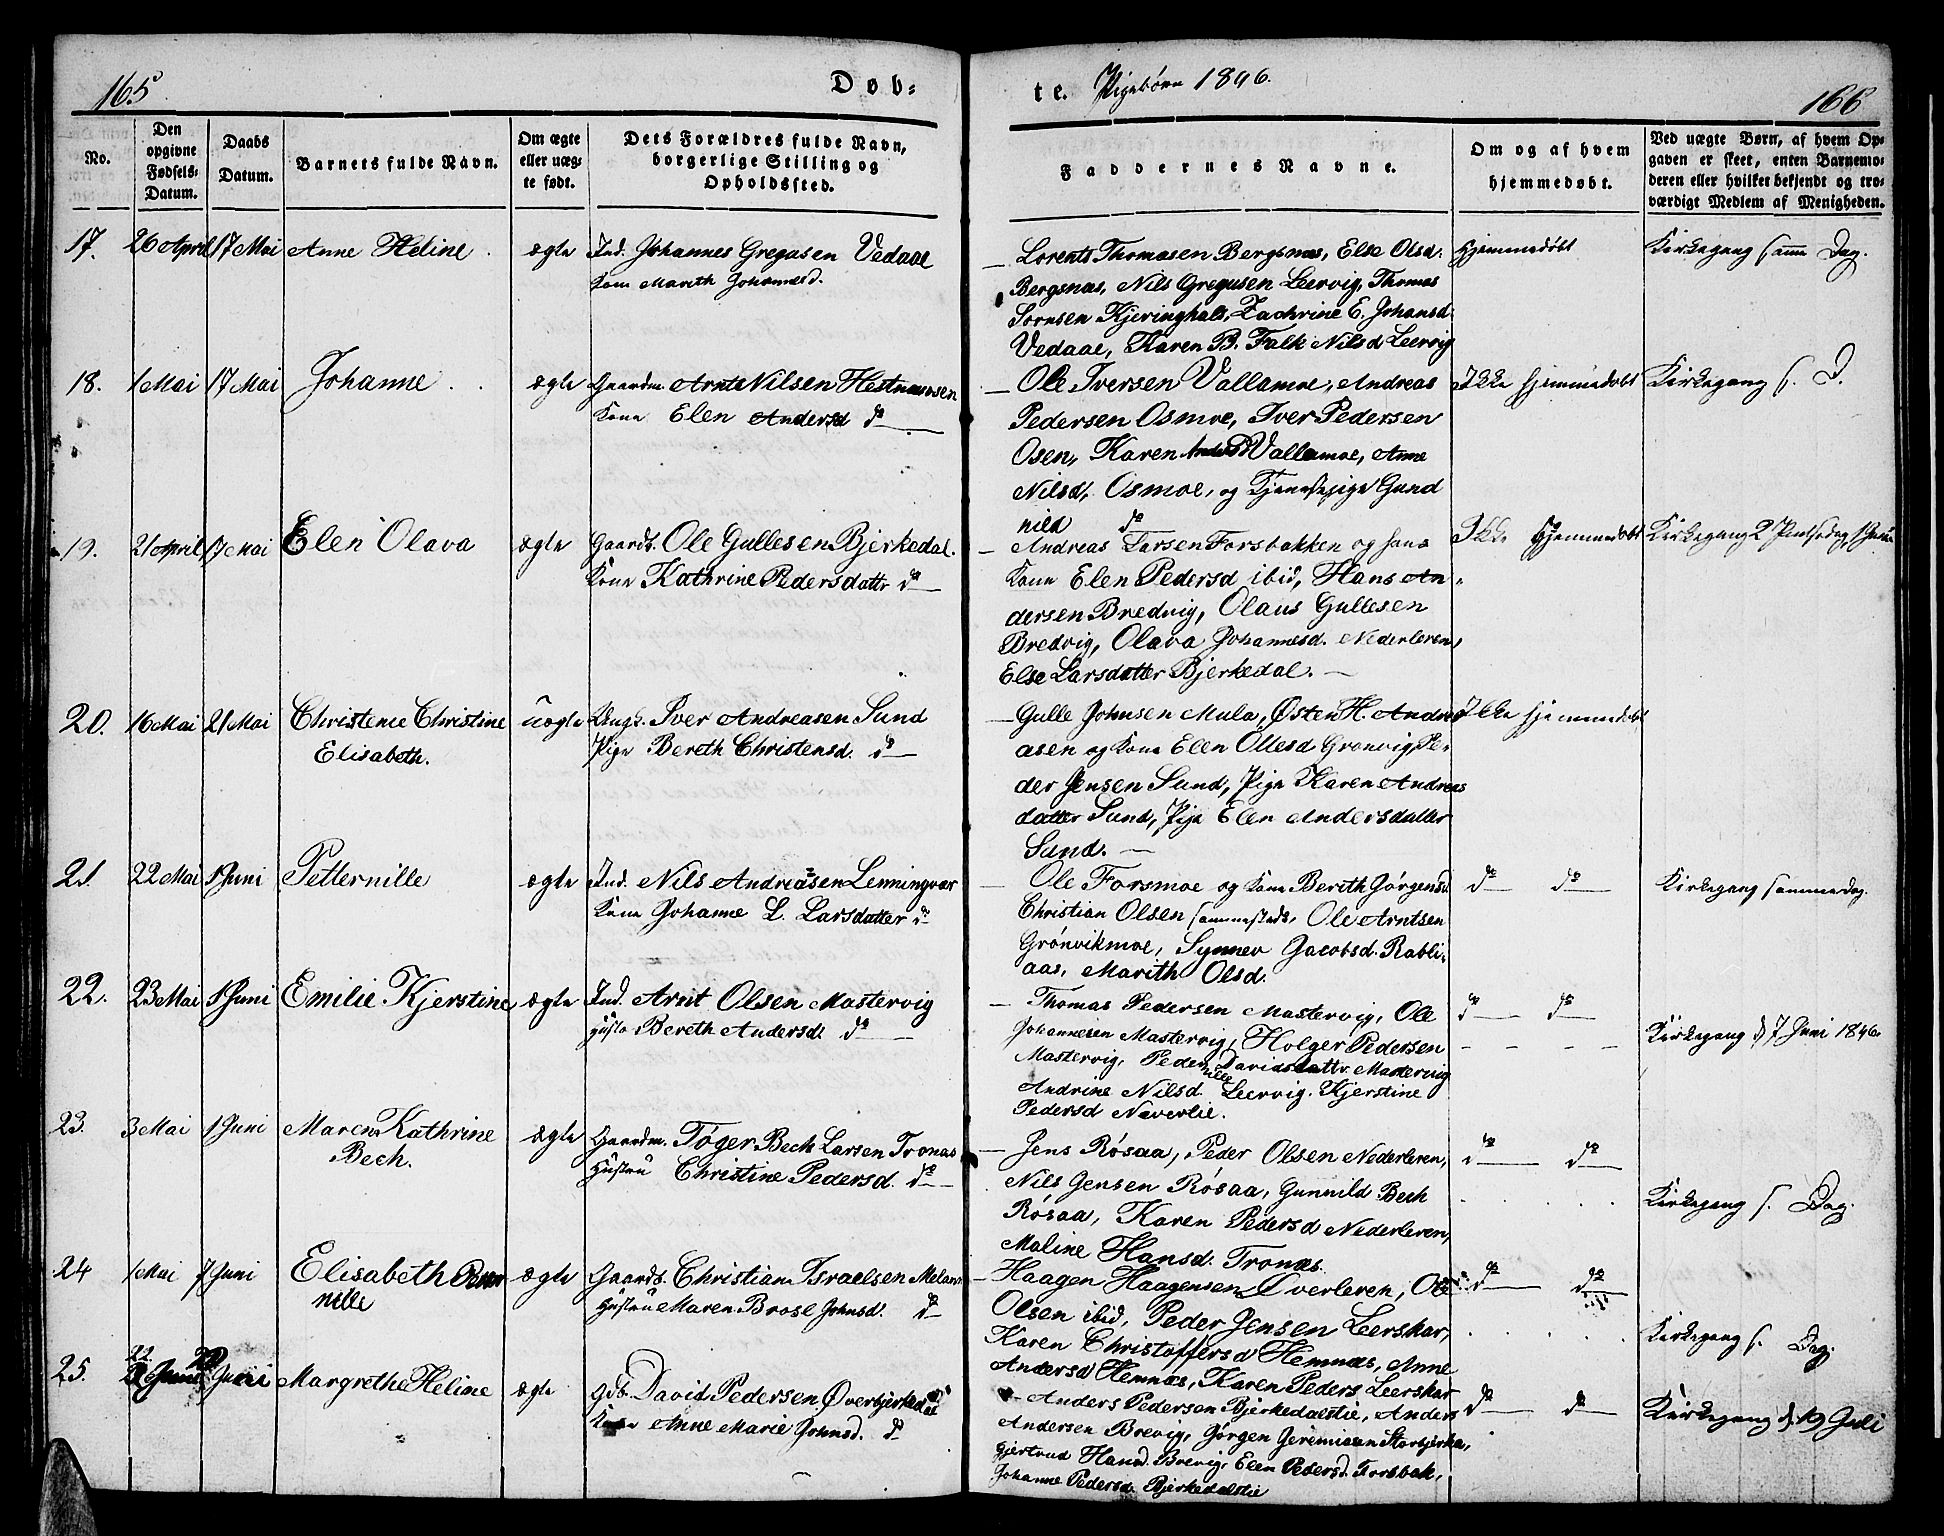 165
Døb-
No.
Den opgivne Fødsels-Datum.
Daabs Datum.
Barnets fulde Navn.
Om ægte eller uæg-te født.
Dets Forældres fulde Navn, borgerlige Stilling og Opholdssted.
17. 26 April 17 Mai Anne Heline ægte Ind. Johannes Gregusen Vedaae
Kone Marith Johannesd.
18. 1 Mai 17 Mai Johanne ægte Gaardm. Arnt Nilsen Hestnæsosen
Kone Elen Andersd do
19. 21 April 17 Mai Elen Olava ægte Gaardb. Ole Gullesen Bjerkedal.
Kone Kathrine Pedersdattr do
20. 16 Mai 21 Mai Christence Christine uægte Ungk. Iver Andreasen Sund
Elisabeth. Pige Bereth Christensd. do
21. 22 Mai 1 Juni Petternille ægte Ind. Nils Andreasen Lenningvær
Kone Johanne L. Larsdatter do
22. 23 Mai 1 Juni Emilie Kjerstine ægte Ind. Arnt Olsen Mastervig
Hustr Bereth Andersd. do
23. 3 Mai 1 Juni Maren Kathrine ægte Gaardm. Tøger Bech Larsen Tronæs
Bech. Hustru Christine Pedersd. do
24 1 Mai 7 Juni Elisabeth Peter ægte Gaardb. Christian Israelsen
nille Hustru Maren Brose Johnsd. do
22
25. Juni Margrethe Heline ægte Gdb. David Pedersen Øverbjerkedal
Kone Anne Marie Johnsd. do
te. Pigebørn 1846.
166
Faddernes Navne.
Om og af hvem hjemmedøbt.
Ved uægte Børn, af hvem Op-
gaven er skeet, enten Barnemo-
deren eller hvilket bekjendt og tro-
værdigt Medlem af Menigheden.
Lorents Thomasen Bergsnæs, Else Olsd. Hjemmedøbt Kirkegang samme Dag.
Bergsnæs, Nils Gregusen Leervig, Thomas
Sørnsen Kjeringhals, Zachrine E. Johansd.
Vedaae, Karen B. Falk Nilsd Leervig
Ole Iversen Vallamoe, Andreas Ikke Hjemmedøbt Kirkegang s. D.
Pedersen Osmoe, Iver Pedersen
Osen, Karen Andersd Vallamoe, Anne
Nilsd. Osmoe, og Tjenestepige Gund
nild do
Andreas Larsen Forsbakken og hans Ikke Hjemmedøbt Kirkegang 2 Pintsedag, 1 Juni
Kone Elen Pedersd ibid, Hans An-
dersen Bredvig, Olaus Gullesen
Bredvig, Olava Johannesd. Nederleren,
Else Larsdatter Bjerkedal.
Gulle Johnsen Mula, Østen H. Andre Ikke Hjemmedøbt
asen og Kone Elen Ollesd Grønvig, Pe-
der Jensen Sund, Pige Karen Andreas
datter Sund, Pige Elen Andersdatter
Sund.
Ole Forsmoe og Kone Berith Jørgensd. do do Kirkegang sammedag.
Christian Olsen sammesteds, Ole Arntsen
Grønvikmoe, Synnev Jacobsd. Rabli-
aas, Marith Olsd.
Thomas Pedersen Mastervig, Ole do do
Johannesen Mastervig, Holger Pedersen Kirkegang d 7 Juni 1846.
Mastervig, Peder nille Davidsdattr Mastervig
Andrine Nilsd. Leervig. Kjerstine
Pedersd Naverlie.
Jens Røsaa, Peder Olsen Nederleren, do do
Nils Jensen Røsaa, Gunnild Bech Kirkegang s. Dag.
Røsaa, Karen Pedersd Nederleren,
Maline Hansd. Tronæs.
Haagen Haagensen Øverleren, Ole do do
Olsen ibid, Peder Jensen Leerskar,
Karen Christoffersd Hemnæs, Anne Kirkegang s. Dag.
Andersd Hemnæs, Karen Peders Leerskar
Anders Pedersen Bjerkedalslie, Anders do do Kirkegang d 19 Juli
Andersen Brevig, Jørgen Jeremiasen Storbjerka,
Gjertrud Hansd. Brevig, Elen Pedersd. Forsbak,
Johanne Pedersd. Bjerkedalslie